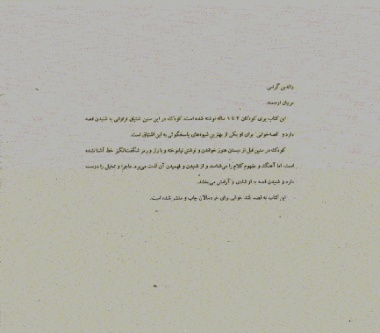 والدین گرامی
مربیان ارجمند
این کتاب برای کودکان ۴ تا ۶ ساله نوشته شده است. کودک در این سنین اشتیاق فراوانی به شنیدن قصه
دارد و قصه‌خوانی برای او یکی از بهترین شیوه‌های پاسخگوئی به این اشتیاق است.
کودک در سنین قبل از دبستان هنوز خواندن و نوشتن نیاموخته و با راز و رمز شگفت‌انگیز خط آشنا نشده
است، اما آهنگ و مفهوم کلام را می‌شناسد و از شنیدن و فهمیدن آن لذت می‌برد. ماجرا و تخیل را دوست
دارد و شنیدن قصه به او شادی و آرامش می‌بخشد.
این کتاب به قصد بلند خوانی برای خردسالان چاپ و منتشر شده است.